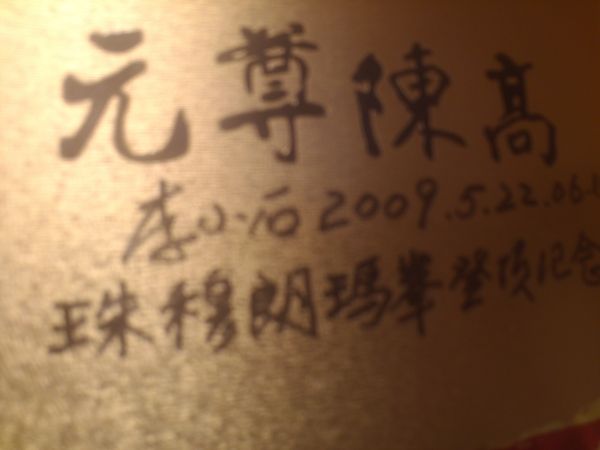 元尊陳高
李小石2009.5.22.06.1
珠穆朗瑪峯登顶记念